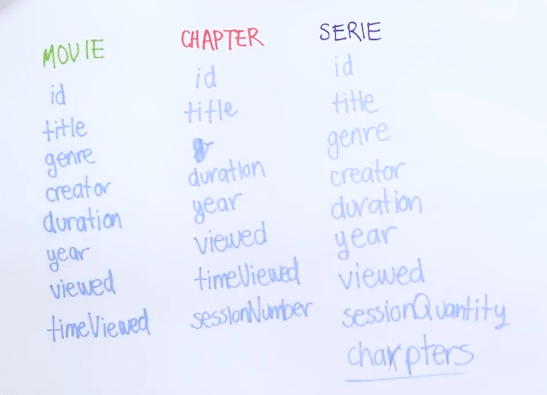 MOVIE
id
title
genre
creator
duration
year
viewed
timeViewed
CHAPTER
id
title
duration
year
viewed
timeViewed
sessionNumber
SERIE
id
title
genre
creator
duration
year
viewed
sessionQuantity
charpters